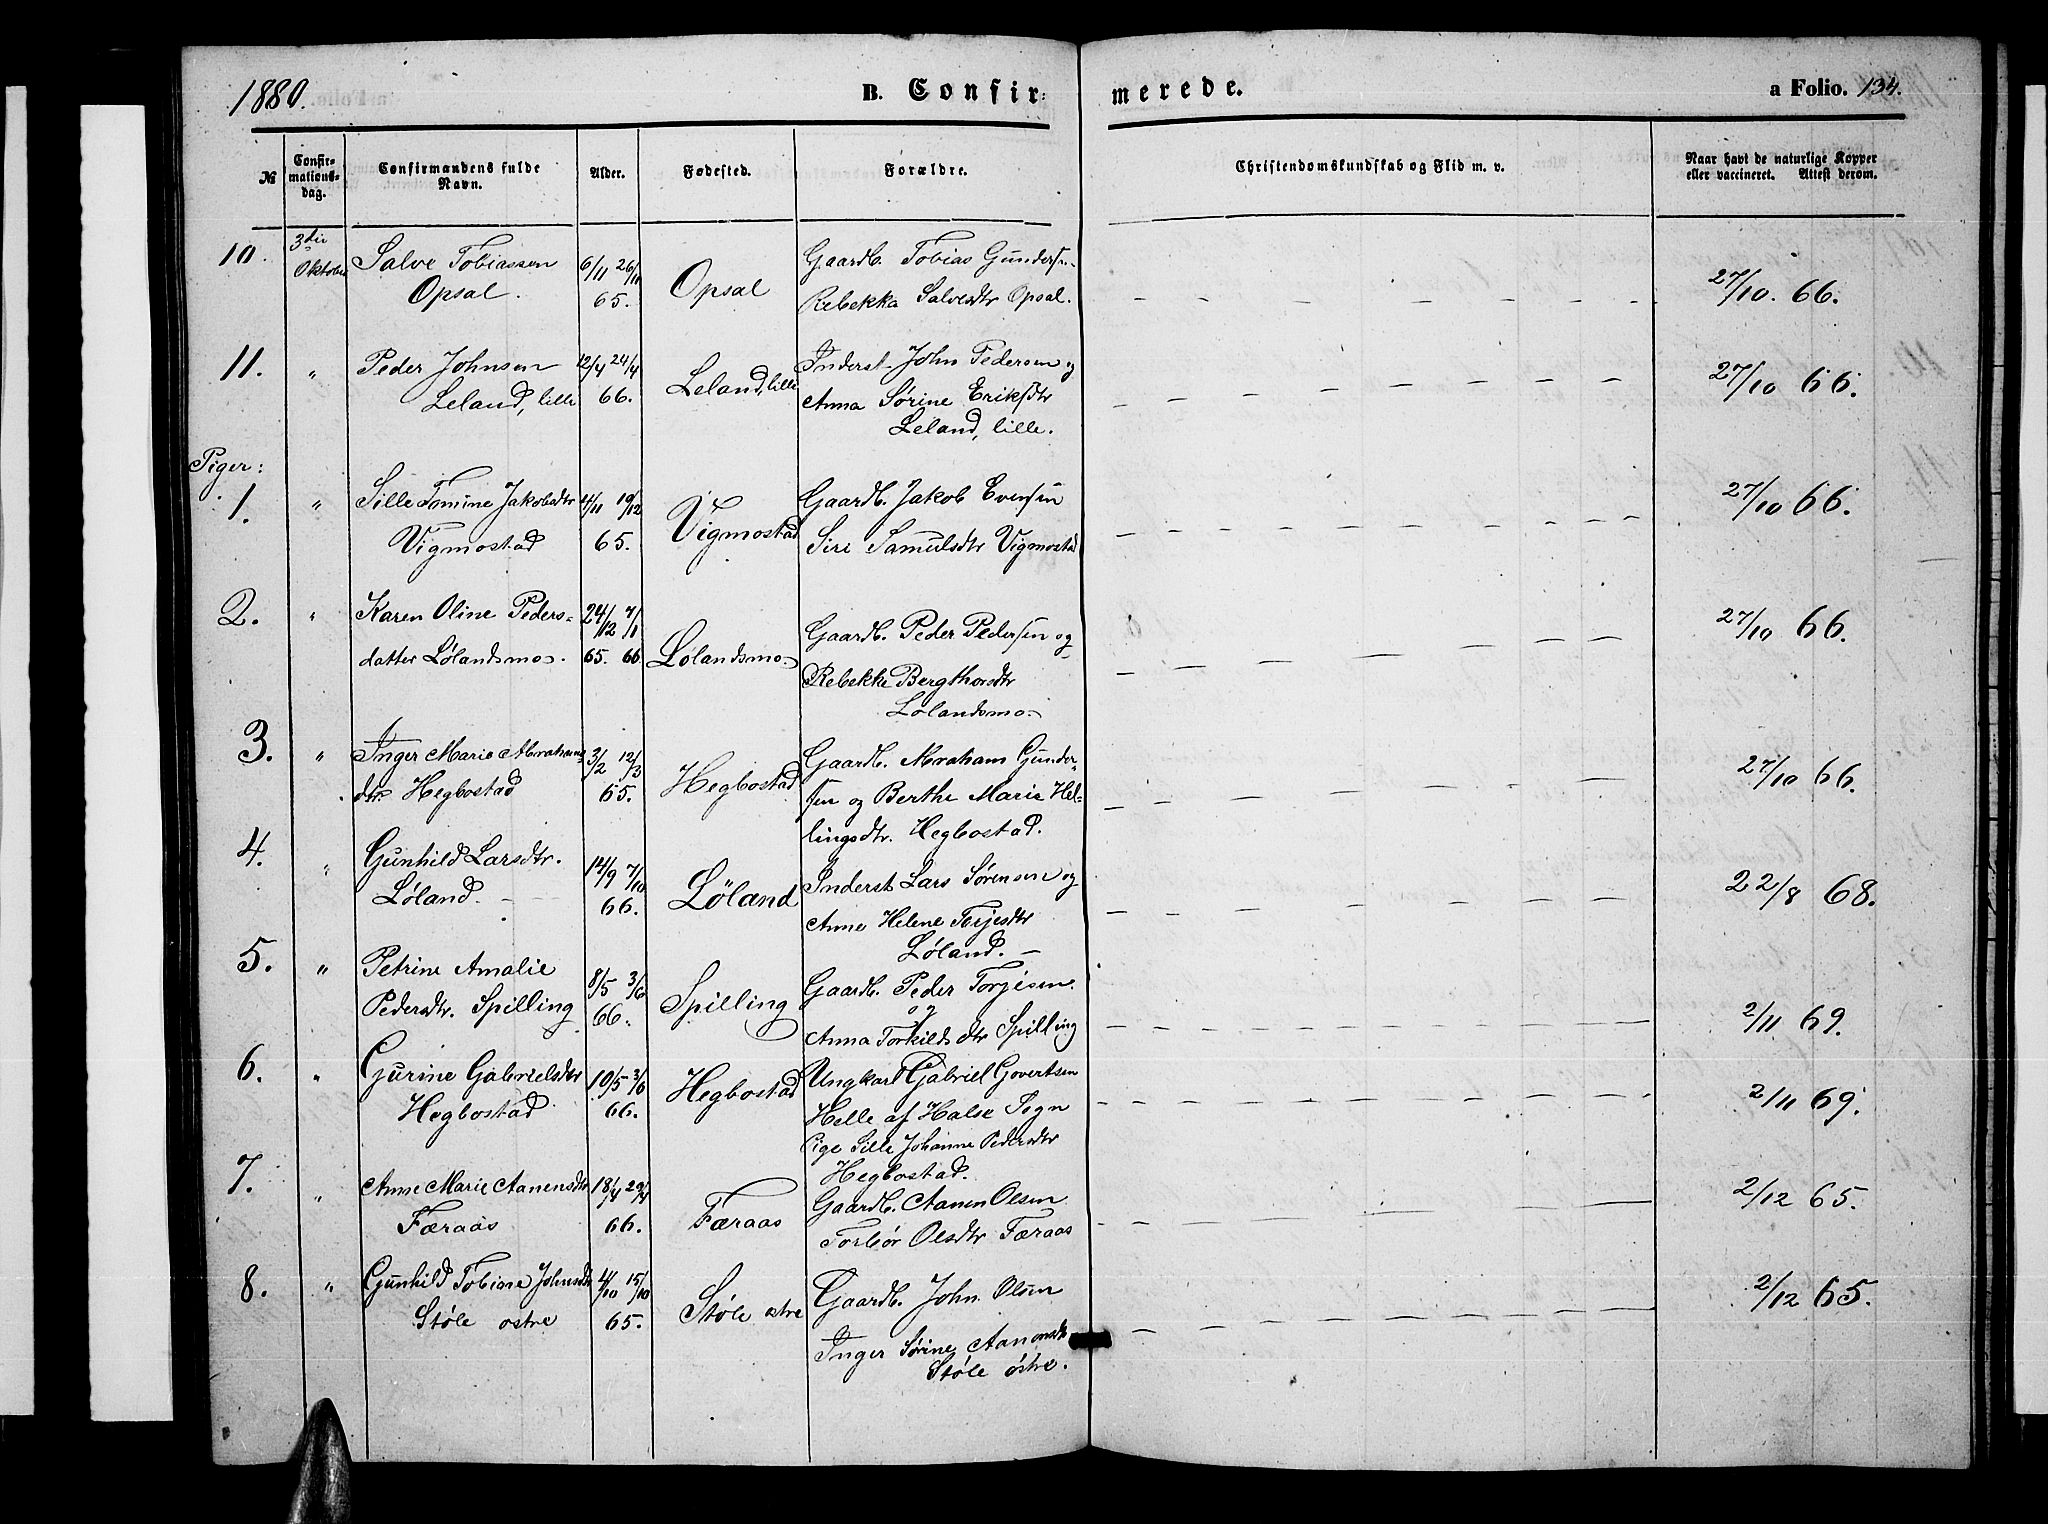 1880.
B. Confir-
merede.
a Folio. 134.
№
Confir-
mations-
dag.
Confirmandens fulde
Navn.
Alder.
Fødested.
Forældre.
Christendomskundskab og Flid m. v.
Naar havt de naturlige Kopper
eller vaccineret. Attest derom.
10. 3die Oktober Salve Tobiassen 6/11 26/11 Opsal Gaardb. Tobias Gundersen 27/10. 66.
Opsal. 65. Rebekka Salvesdtr Opsal.
11. " Peder Johnsen 12/4 24/4 Leland, lille Inderst John Pedersen og 27/10 66.
Leland, lille 66. Anna Sørine Eriksdtr
Leland, lille.
Piger:
1. " Sille Tomine Jakobsdtr 4/11 19/12 Vigmostad Gaardb. Jakob Evensen 27/10 66.
Vigmostad 65. Siri Samulsdtr Vigmostad
2. " Karen Oline Peders- 24/12 7/1 Lølandsmo Gaardb. Peder Pedersen og 27/10 66.
datter Lølandsmo. 65. 66 Rebekke Bergthorsdtr
Lølandsmo
3. " Inger Marie Abrahams 3/2 12/3 Hegbostad Gaardb. Abraham Gunder- 27/10 66.
dtr. Hegbostad 65. sen og Berthe Marie Hel-
lingsdtr. Hegbostad.
4. " Gunhild Larsdtr. 14/9 7/10 Løland Inderst Lars Sørensen og 22/8 68.
Løland. 66. Anne Helene Torjesdtr
Løland.
5. " Petrine Amalie 8/5 3/6 Spilling Gaardb. Peder Torjesen 2/11 69.
Pedersdtr. Spilling 66. og
Anna Torkildsdtr Spilling
6. " Gurine Gabrielsdtr 10/5 3/6 Hegbostad Ungkarl Gabriel Govertsen 2/11 69.
Hegbostad 66. Helle af Halse Sogn
Pige Sille Johanne Pedersdtr
Hegbostad.
7. " Anne Marie Aanensdtr 18/4 29/4 Færaas Gaardb. Aanen Olsen 2/12 65.
Færaas 66. Torbør Olsdtr Færaas
8. " Gunhild Tobine Johnsdtr 4/10 15/10 Støle østre Gaardb. John Olsen 2/12 65.
Støle østre 65. Inger Sørine Aanensdtr
Støle østre.